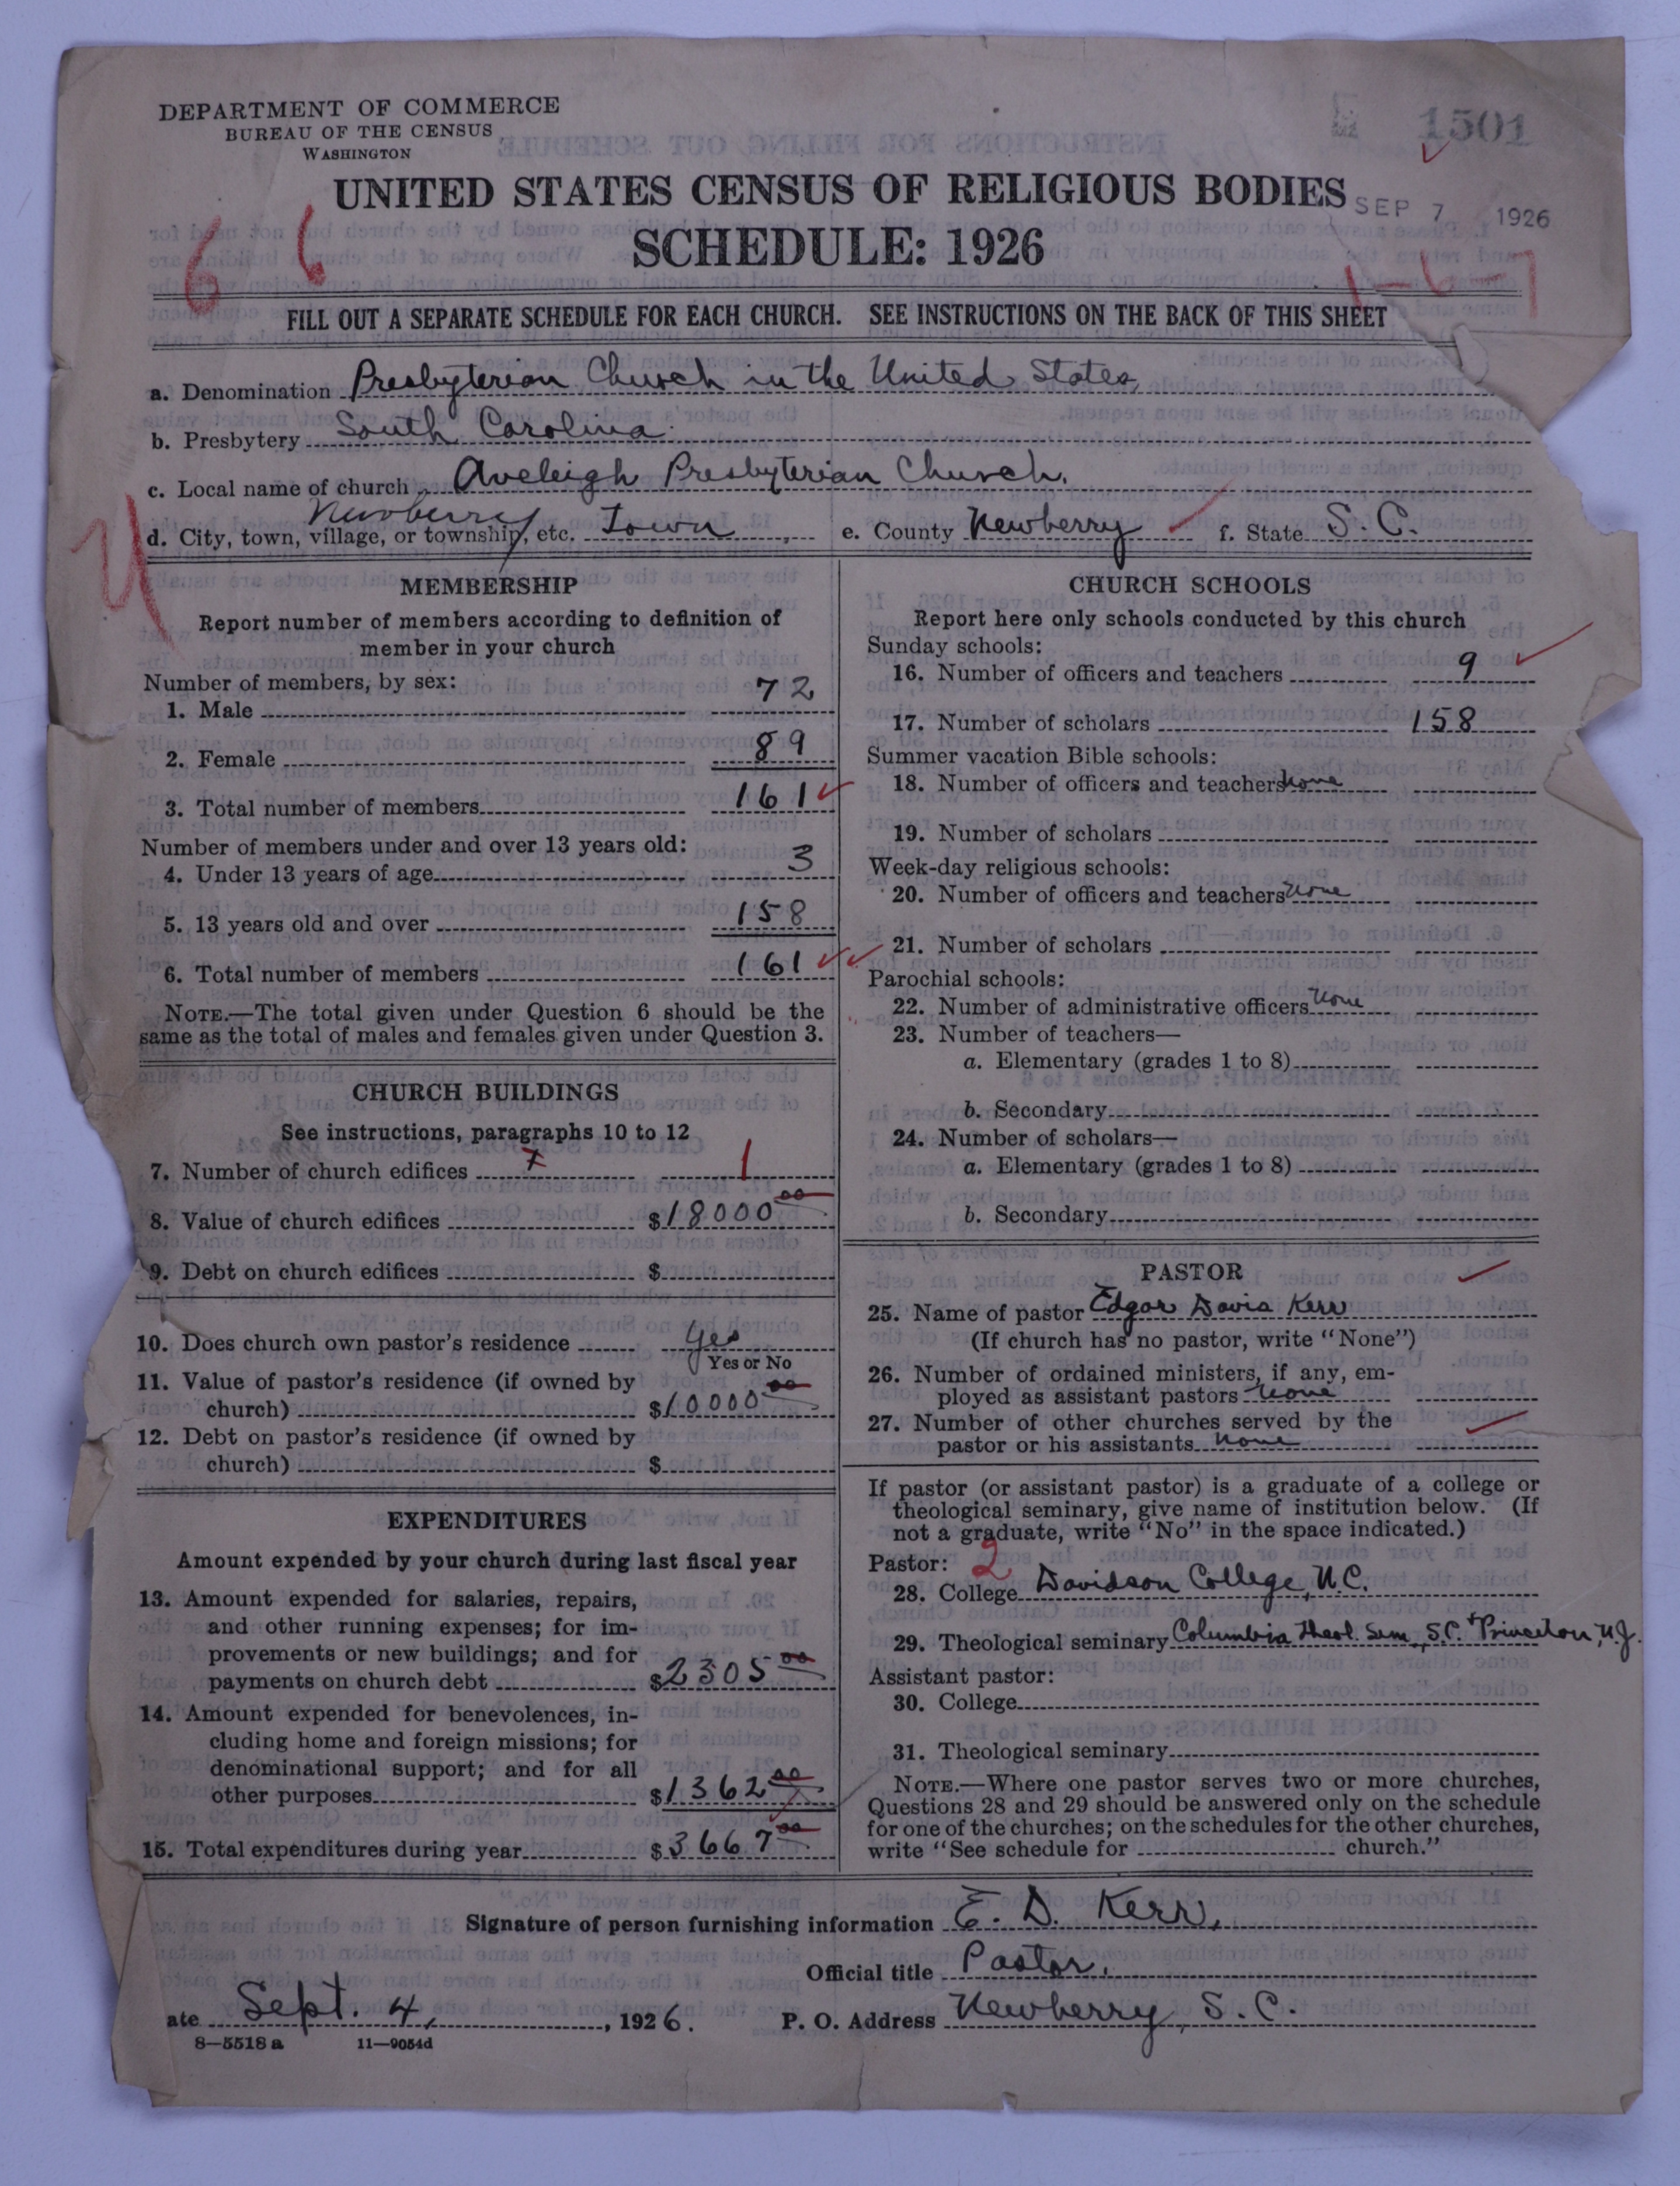 DEPARTMENT OF COMMERCE
BUREAU OF THE CENSUS
WASHINGTON
1501
UNITED STATES CENSUS OF RELIGIOUS BODIES
SEP 7 1926
SCHEDULE: 1926
6 6
1-6-7
FILL OUT A SEPARATE SCHEDULE FOR EACH CHURCH. SEE INSTRUCTIONS ON THE BACK OF THIS SHEET
a. Denomination Presbyterian Church in the United States
b. Presbytery South Carolina
c. Local name of church Aveleigh Presbyterian Church.
Newberry
d. City, town, village, or township, etc. Town e. County Newberry f. State S. C.
MEMBERSHIP
Report number of members according to definition of
member in your church
Number of members, by sex:
1. Male 72
2. Female 89
3. Total number of members 161
Number of members under and over 13 years old:
4. Under 13 years of age 3
5. 13 years old and over 158
6. Total number of members 161
NOTE.—The total given under Question 6 should be the
same as the total of males and females given under Question 3.
CHURCH BUILDINGS
See instructions, paragraphs 10 to 12
7. Number of church edifices 1
8. Value of church edifices $18000 00
9. Debt on church edifices $
10. Does church own pastor's residence Yes
Yes or No
11. Value of pastor's residence (if owned by
church) $10000 00
12. Debt on pastor's residence (if owned by
church) $
EXPENDITURES
Amount expended by your church during last fiscal year
13. Amount expended for salaries, repairs,
and other running expenses; for im-
provements or new buildings; and for
payments on church debt $2305 00
14. Amount expended for benevolences, in-
cluding home and foreign missions; for
denominational support; and for all
other purposes $1362 00
15. Total expenditures during year $3667 00
CHURCH SCHOOLS
Report here only schools conducted by this church
Sunday schools:
16. Number of officers and teachers 9
17. Number of scholars 158
Summer vacation Bible schools:
18. Number of officers and teachers none
19. Number of scholars
Week-day religious schools:
20. Number of officers and teachers none
21. Number of scholars
Parochial schools:
22. Number of administrative officers none
23. Number of teachers—
a. Elementary (grades 1 to 8)
b. Secondary
24. Number of scholars—
a. Elementary (grades 1 to 8)
b. Secondary
PASTOR
25. Name of pastor Edgar Davis Kerr
(If church has no pastor, write "None")
26. Number of ordained ministers, if any, em-
ployed as assistant pastors none
27. Number of other churches served by the
pastor or his assistants none
If pastor (or assistant pastor) is a graduate of a college or
theological seminary, give name of institution below. (If
not a graduate, write "No" in the space indicated.)
Pastor: 2
28. College Davidson College, N.C.
29. Theological seminary Columbia Theol. Sem., S.C. + Princeton, N.J.
Assistant pastor:
30. College
31. Theological seminary
NOTE.—Where one pastor serves two or more churches,
Questions 28 and 29 should be answered only on the schedule
for one of the churches; on the schedules for the other churches,
write "See schedule for church."
Signature of person furnishing information E. D. Kerr,
Official title Pastor.
ate Sept. 4, , 1926. P. O. Address Newberry, S. C.
8—5518 a 11—9054d